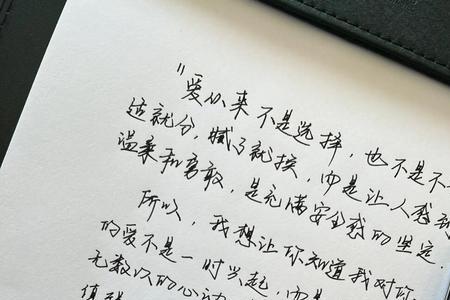 "爱从来不是选择,也不是不
适就分,腻了就换,而是让人感到
温柔和勇敢,是充满安全感的坚定.
所以,我想让你知道我对你
的爱不是一时兴起,而是
无数次的心动
值得